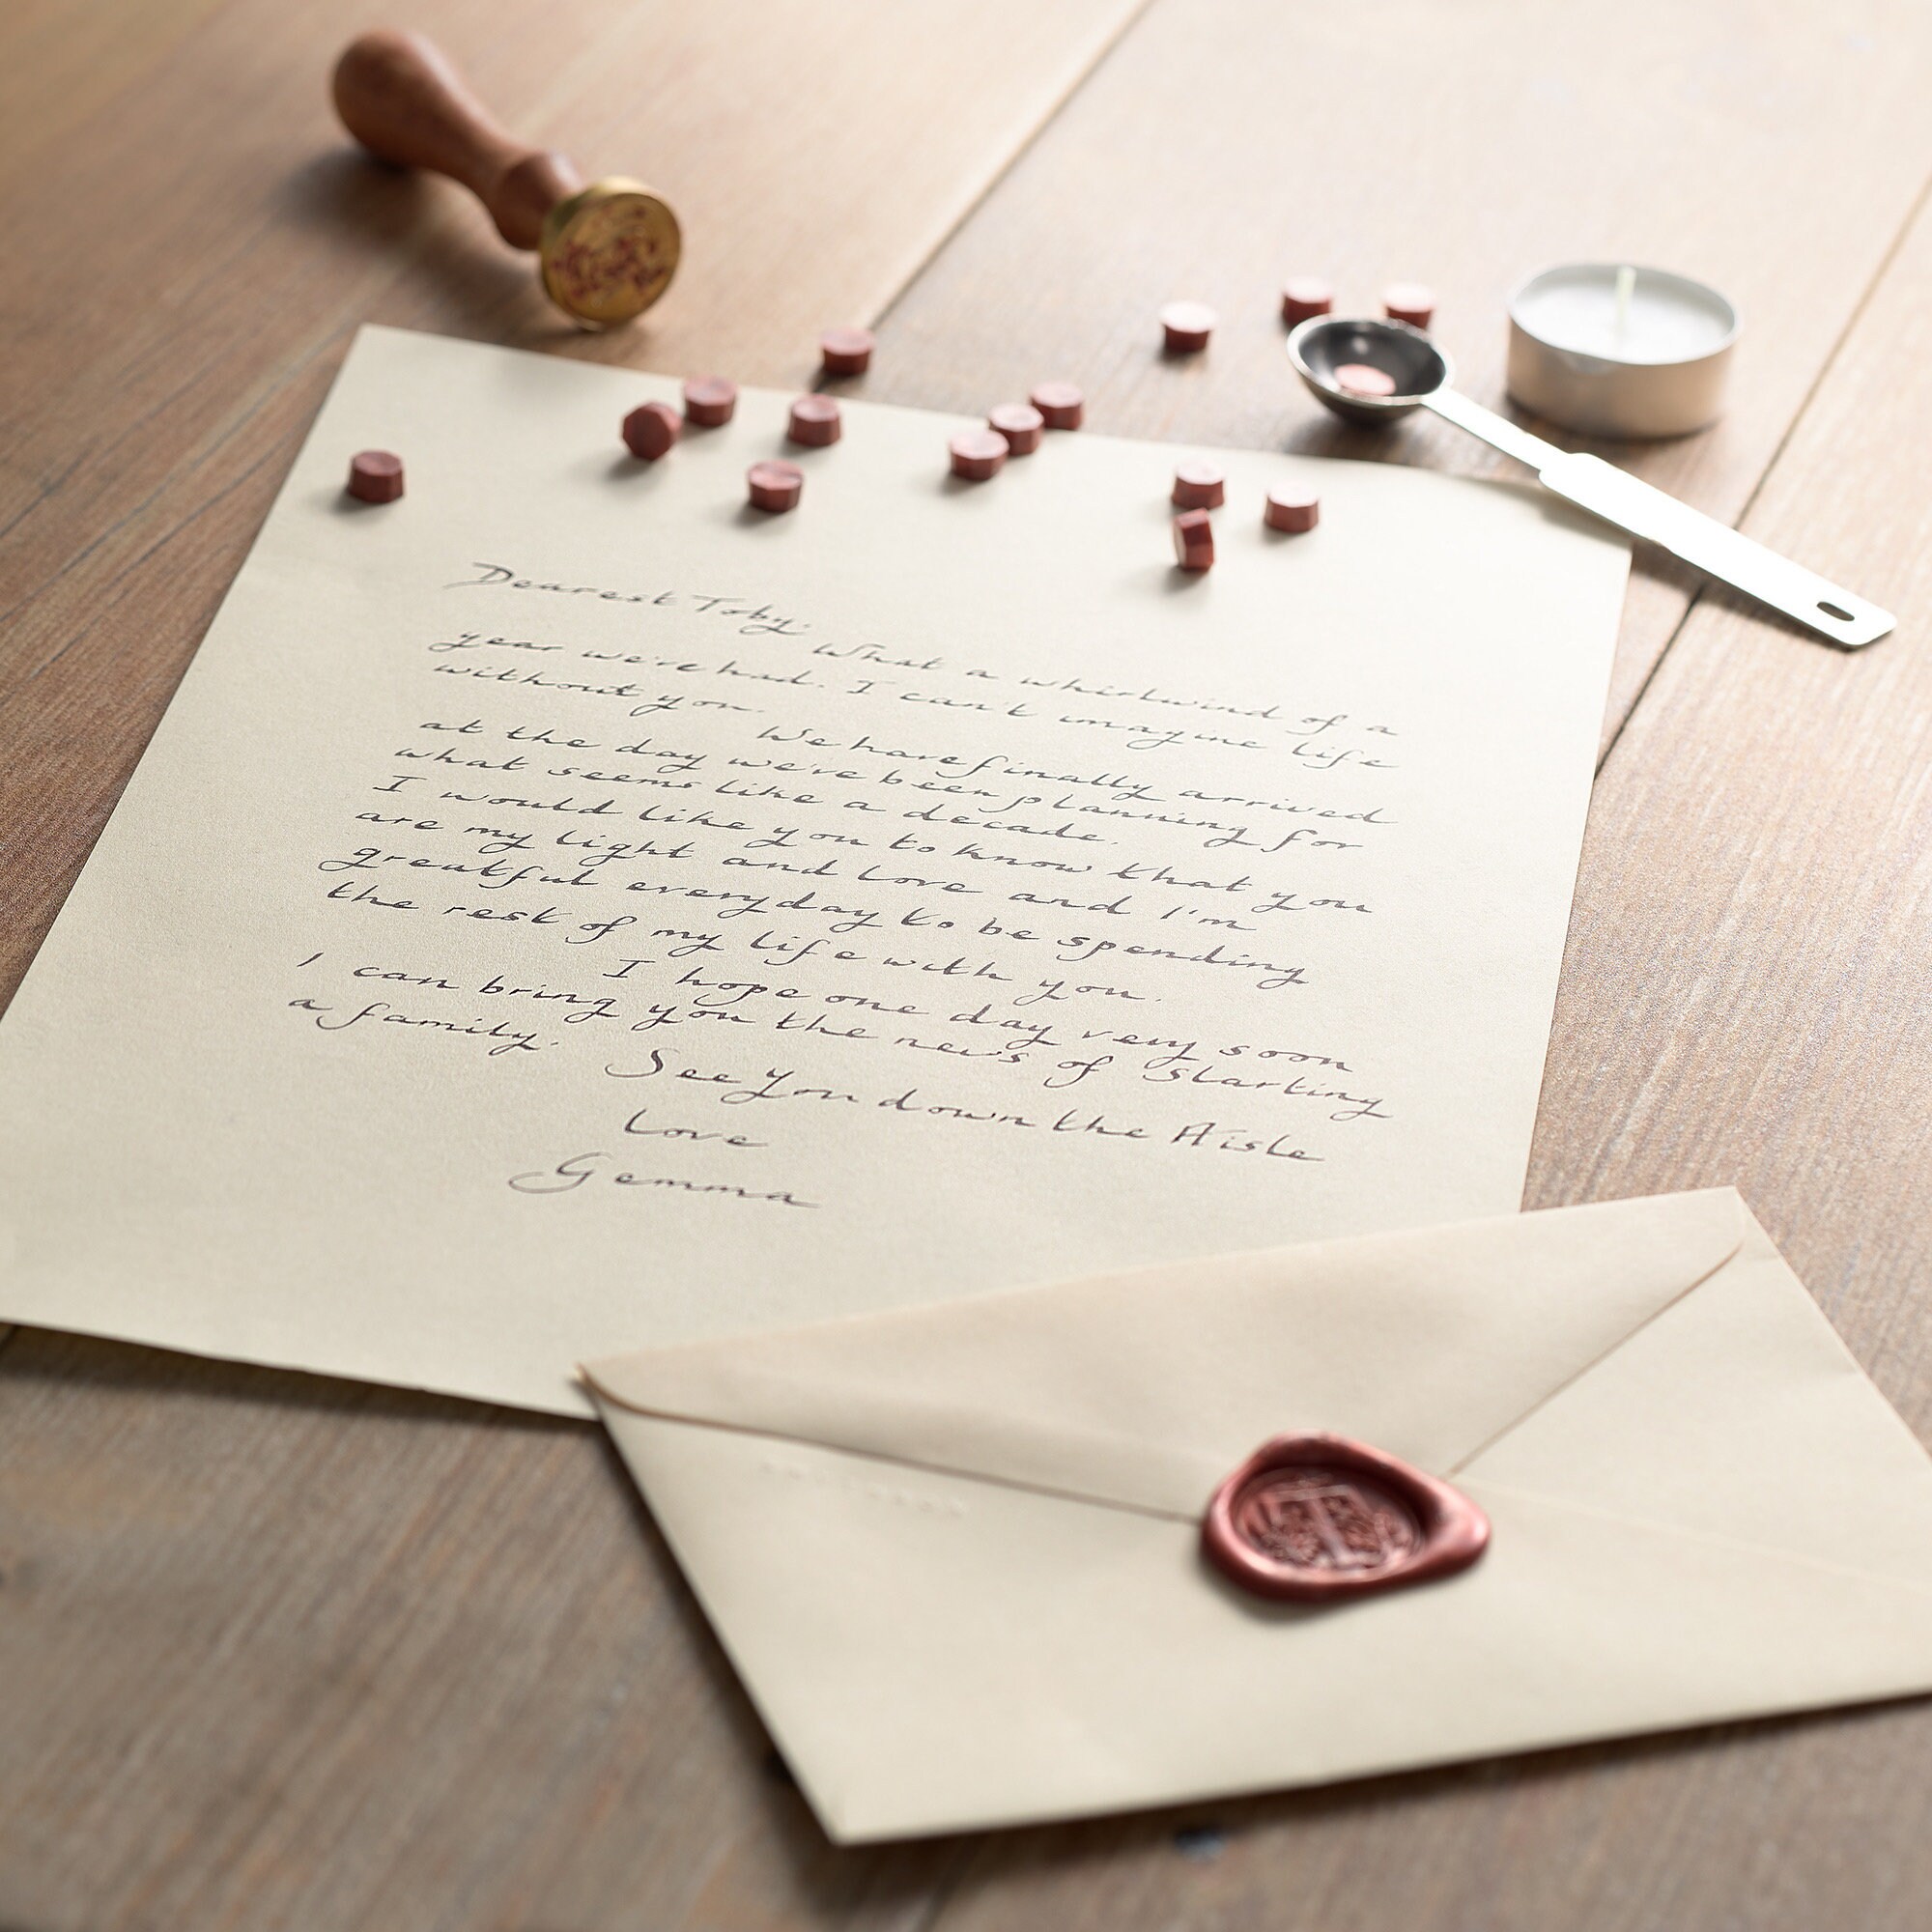 Dearest Toby.
What a whirlwind of a
year we've had. I can't imagine life
without you.
We have finally arrived
at the day we've been planning for
what seems like a decade.
I would like you to know that you
are my light and love and I'm
greatful everyday to be spending
the rest of my life with you.
I hope one day very soon
I can bring you the news of starting
a family.
See you down the Aisle
Love
Gemma
T